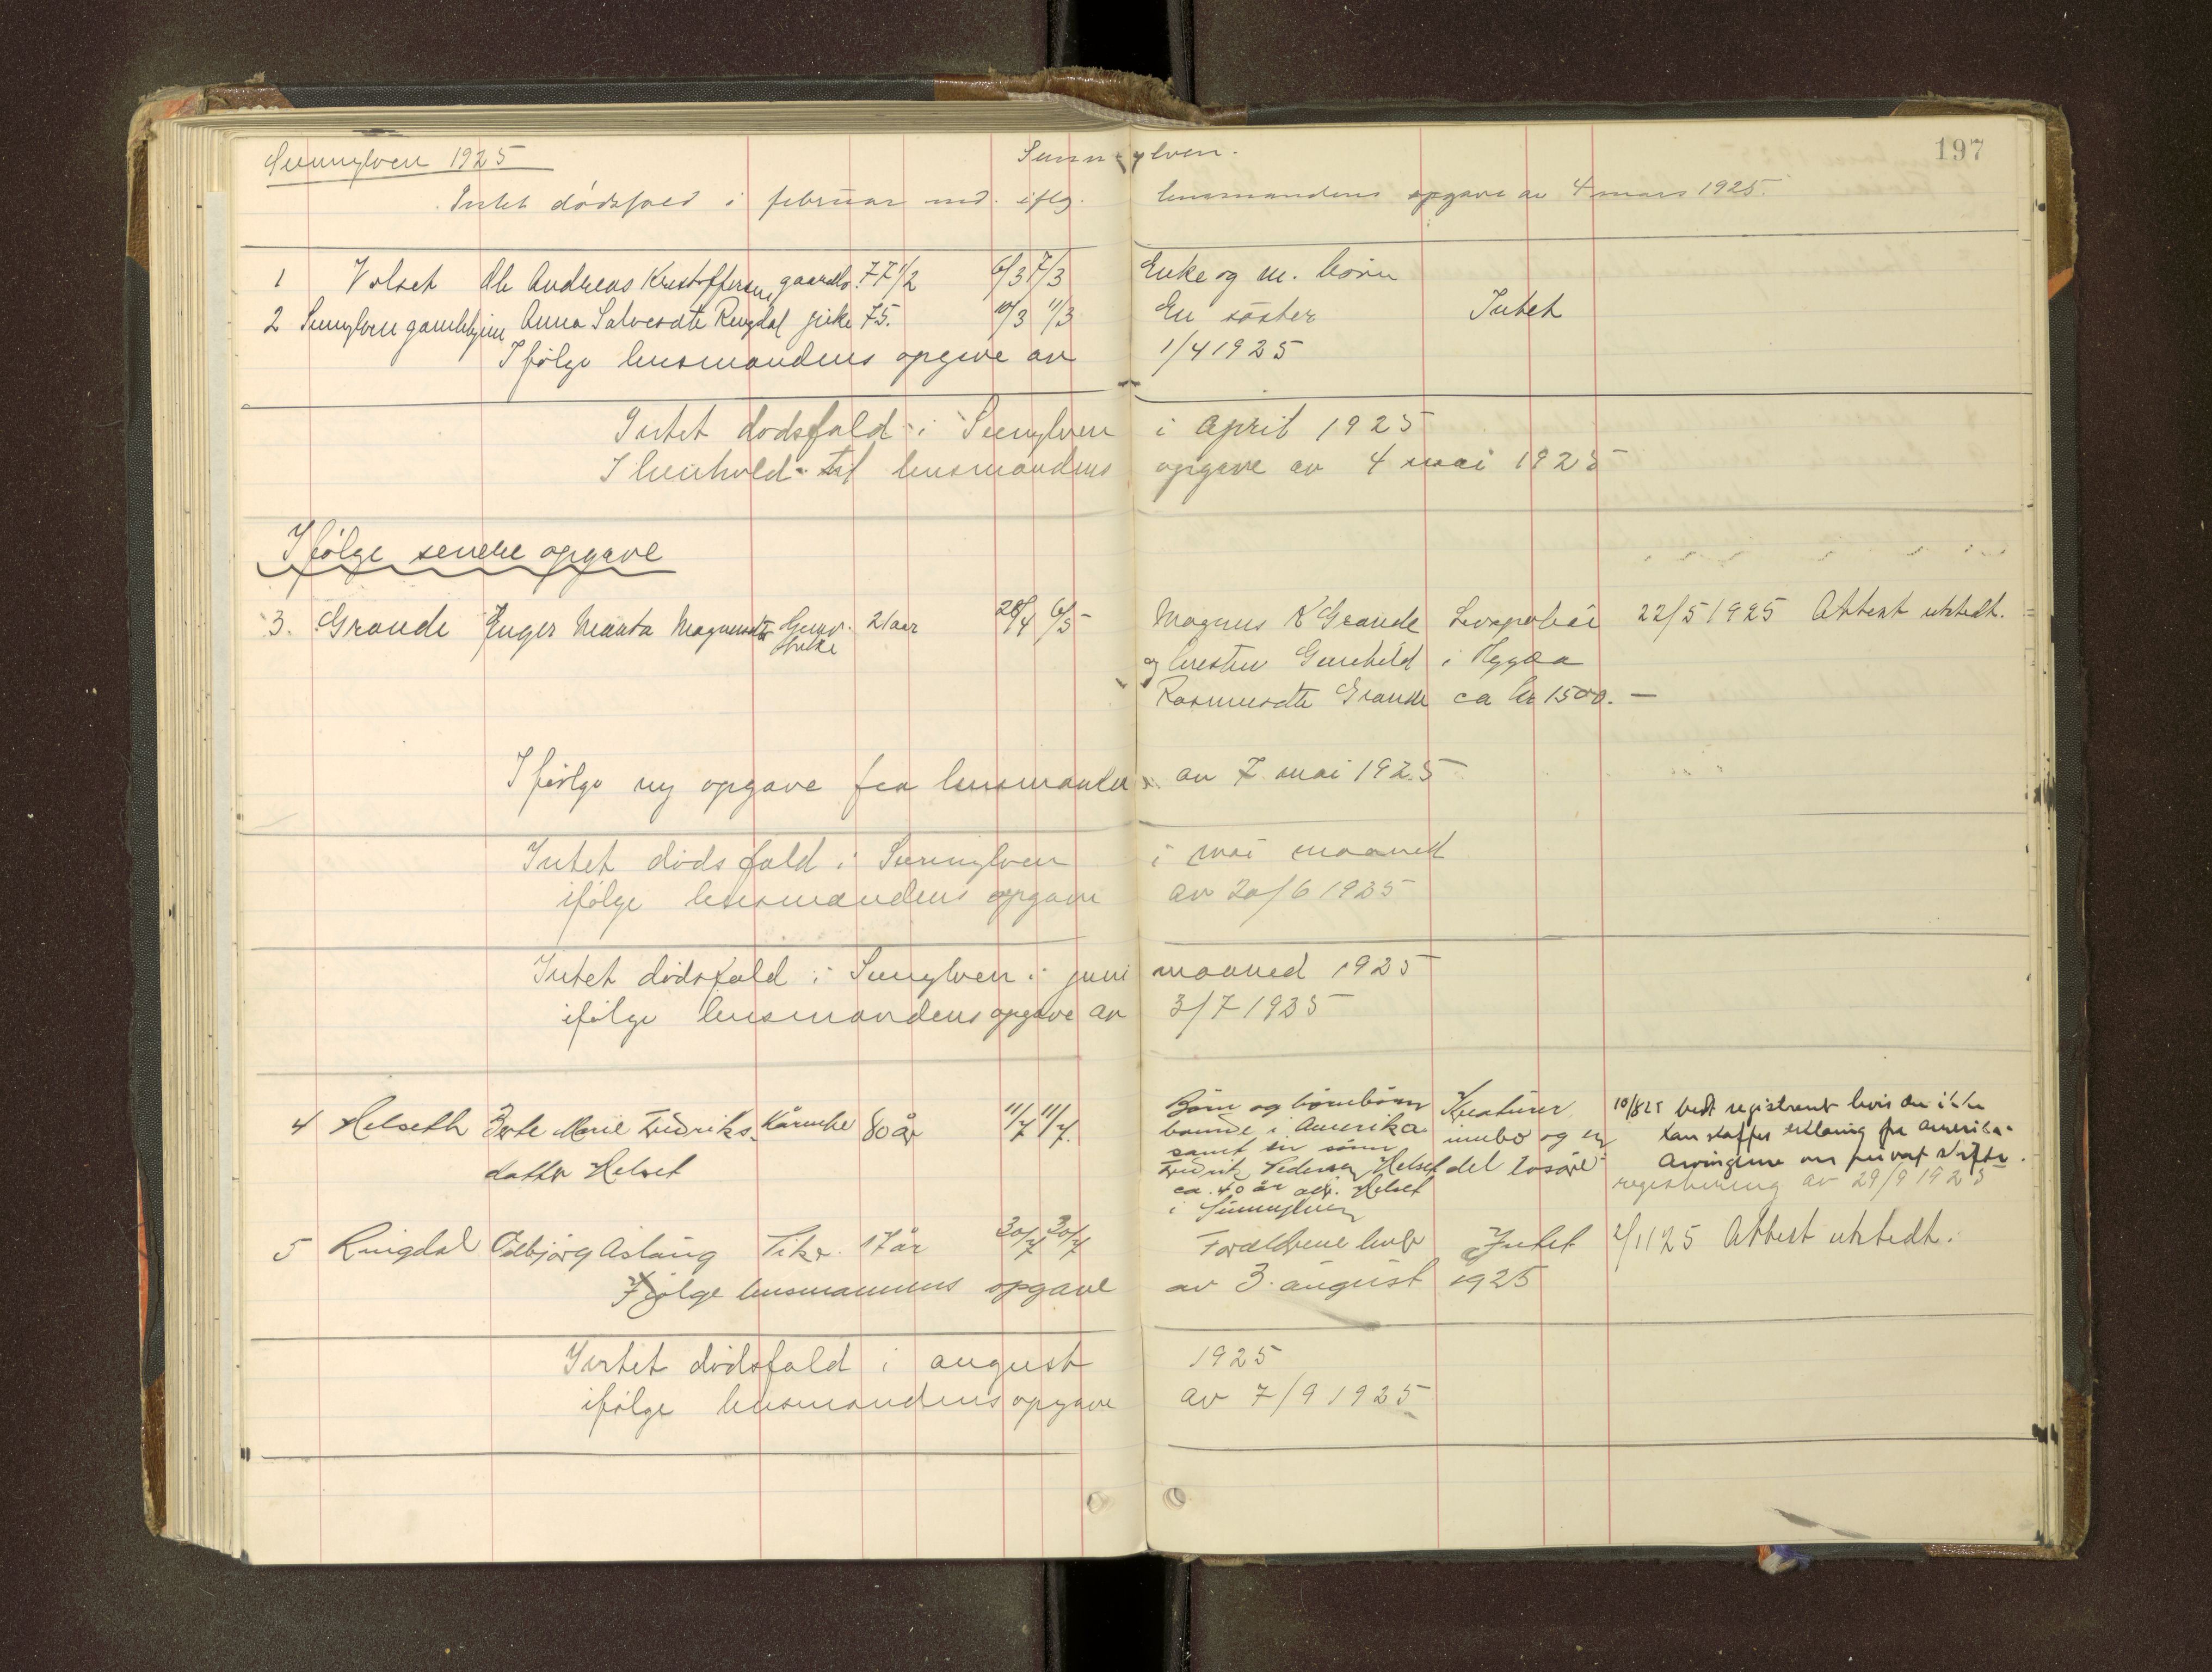 Sunnylven 1925
Sunnylven.
197
Intet dödsfald i februar md. iflg. lensmandens opgave av 4 mars 1925.
1 Volset Ole Andreas Kristoffersen gaardbr. 77 1/2 6/3 7/3 Enke og m. börn
2 Sunnylven gamlehjem Anna Salvesdtr Ringdal pike 75. 10/3 11/3 En söster Intet
Ifölge lensmandens opgave av 1/4 1925
Intet dödsfald i Sunnylven i april 1925
I henhold til lensmandens opgave av 4 mai 1925
Ifölge senere opgave
3. Grande Inger Marta Magnusdtr 21 aar 28/4 6/5 Magnus K Grande 22/5 1925 Attest utstedt.
og hustru Gunhild i Hygea
Rasmusdtr Grande ca kr 1500.-
Ifölge ny opgave fra lensmanden av 7 mai 1925
Intet dödsfald i Sunnylven i mai maaned
ifölge lensmandens opgave av 20/6 1925
Intet dödsfald i Sunnylven i juni maaned 1925
ifölge lensmandens opgave av 3/7 1925
4 Helseth Berte Marie Fredriks- Kårenke 80 år 11/7 11/7. Börn og börnebörn Kreaturer, 10/8 25 bedt registrert hvis der ikke
datter Helset boende i Amerika innbo og en kan skaffes erklæring fra Amerika-
samt en sönn del lösöre arvingene om privat skifte.
Fredrik Pedersen Helset registrering av 29/9 1925
ca. 40 år adr. Helset
i Sunnylven
5 Ringdal Oddbjörg Aslaug Pike. 17 år 30/7 30/7 Forældrene lever Intet 2/11 25 Attest utstedt.
Ifölge lensmannens opgave av 3. august 1925
Intet dödsfald i august 1925
ifölge lensmandens opgave av 7/9 1925